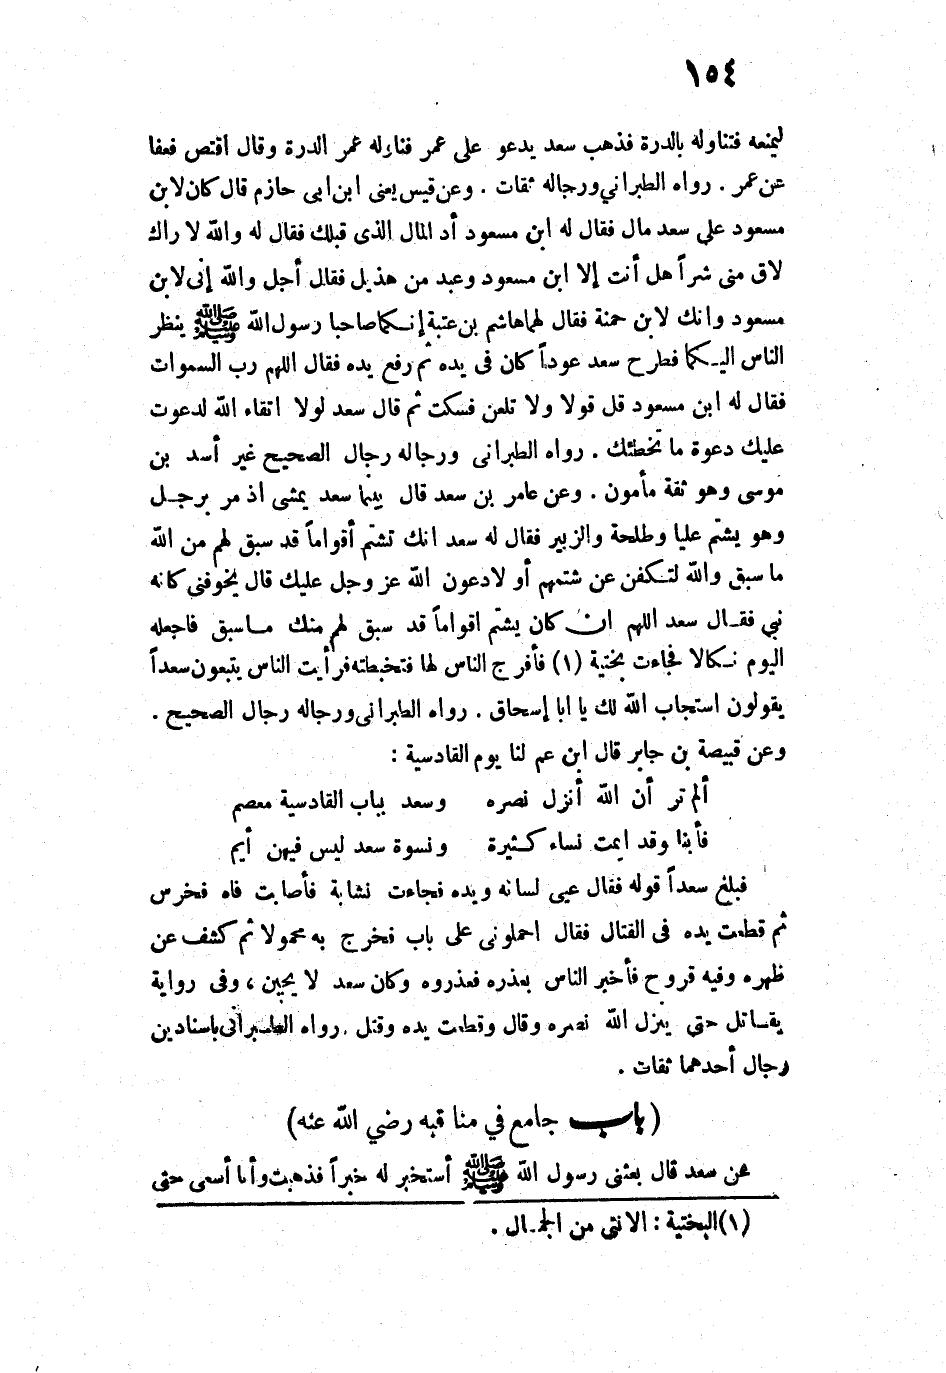 ١٥٤
ليمنعه فتناوله بالدرة فذهب سعد يدعو على عمر فناوله عمر الدرة وقال اقتص فعفا
عن عمر . رواه الطبراني ورجاله ثقات . وعن قيس يعنى ابن ابى حازم قال كان لابن
مسعود على سعد مال فقال له ابن مسعود أد المال الذى قبلك فقال له والله لا راك
لاق منى شراً هل أنت إلا ابن مسعود وعبد من هذيل فقال أجل والله إنى لابن
مسعود وانك لابن حمنة فقال لهما هاشم بن عتبة إنكما صاحبا رسول الله ﷺ ينظر
الناس اليكما فطرح سعد عوداً كان فى يده ثم رفع يده فقال اللهم رب السموات
فقال له ابن مسعود قل قولا ولا تلعن فسكت ثم قال سعد لولا اتقاء الله لدعوت
عليك دعوة ما تخطئك . رواه الطبرانى ورجاله رجال الصحيح غير أسد بن
موسى وهو ثقة مأمون . وعن عامر بن سعد قال بينما سعد يمشى اذ مر برجل
وهو يشتم عليا وطلحة والزبير فقال له سعد انك تشتم أقواماً قد سبق لهم من الله
ما سبق والله لتكفن عن شتمهم أو لادعون الله عز وجل عليك قال يخوفنى كانه
نبي فقال سعد اللهم ان كان يشتم اقواماً قد سبق لهم منك ما سبق فاجعله
اليوم نكالا فجاءت بختية (١) فأفرج الناس لها فتخبطته فرأيت الناس يتبعون سعداً
يقولون استجاب الله لك يا ابا إسحاق . رواه الطبرانى ورجاله رجال الصحيح .
وعن قبيصة بن جابر قال ابن عم لنا يوم القادسية :
ألم تر أن الله أنزل نصره وسعد بباب القادسية معصم
فأبنا وقد ايمت نساء كثيرة ونسوة سعد ليس فيهن أيم
فبلغ سعداً قوله فقال عيى لسانه ويده فجاءت نشابة فأصابت فاه فخرس
ثم قطعت يده فى القتال فقال احملونى على باب فخرج به محمولا ثم كشف عن
ظهره وفيه قروح فأخبر الناس بعذره فعذروه وكان سعد لا يجبن ، وفى رواية
يقاتل حتى ينزل الله نصره وقال وقطعت يده وقتل . رواه الطبرانى باسنادين
رجال أحدهما ثقات .
(باب جامع في مناقبه رضي الله عنه)
عن سعد قال بعثنى رسول الله ﷺ أستخبر له خبراً فذهبت وأنا أسعى حتى
(١) البختية : الانثى من الجمال .